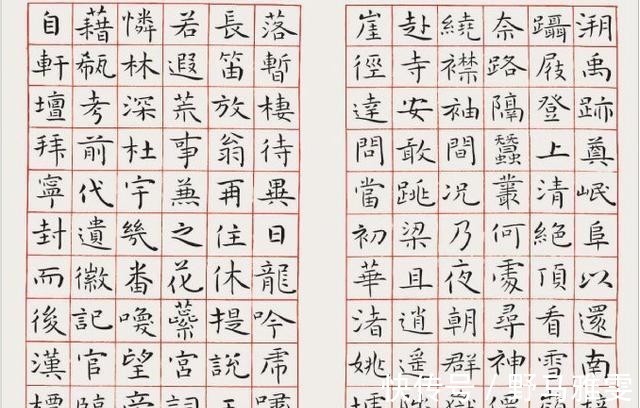 溯禹跡奠岷阜以還南
躡屐登上清絕頂看雪
奈路隔蠶叢何處尋神
繞襟袖間況乃夜朝群
赴寺安敢跳梁且逍遙
崖徑達問當初華渚姚
落暫棲待畢日龍吟虎嘯
長笛放翁再住休提說王
若遐荒事兼之花蕊宮詞
憐林深杜宇幾番喚望帝
藉瓻考前代遺徽記官臨
自軒壇拜寧封而後漢標
快传号 /